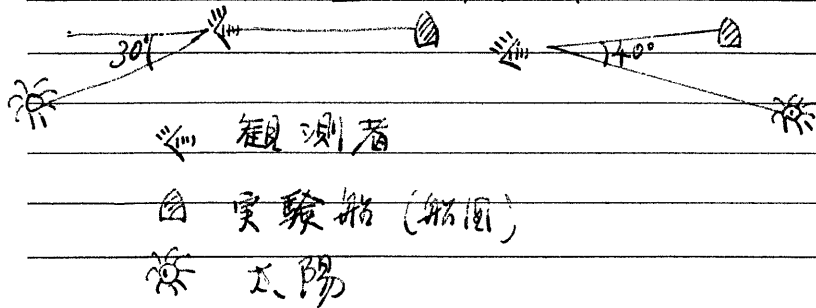 30° 40°
観測者
実験船 (船団)
太陽